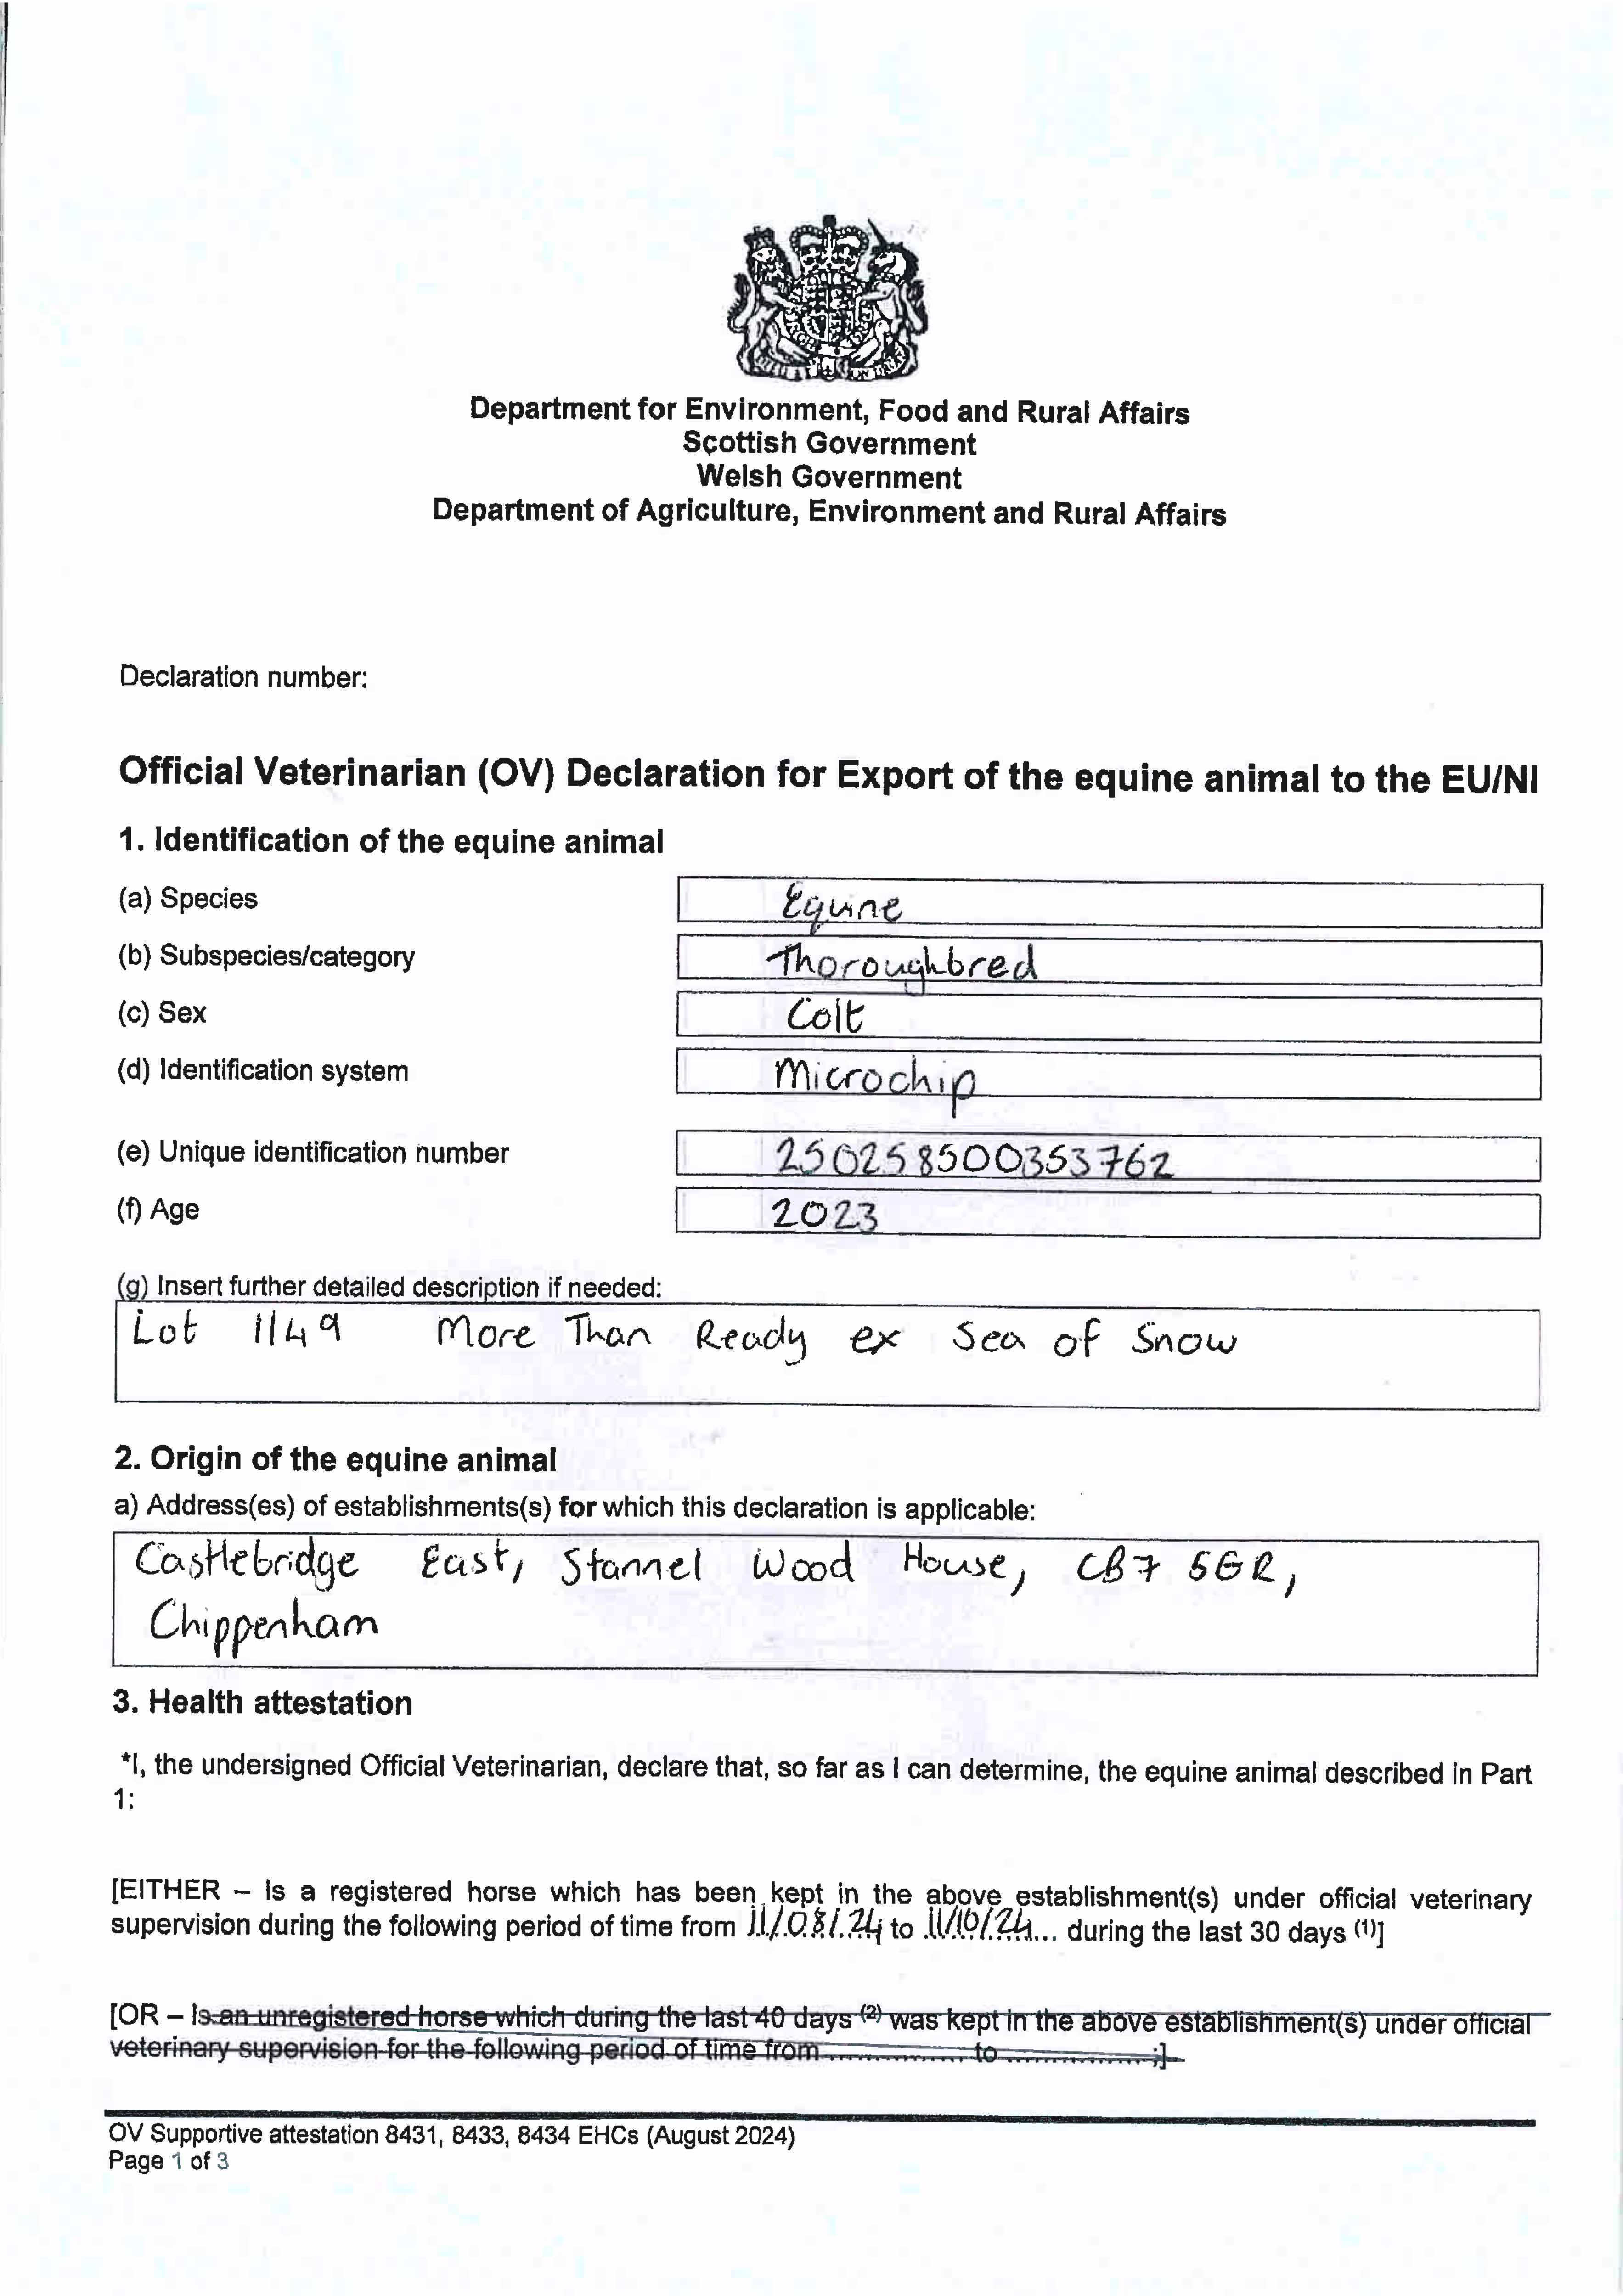 Department for Environment, Food and Rural Affairs
Scottish Government
Welsh Government
Department of Agriculture, Environment and Rural Affairs
Declaration number:
Official Veterinarian (OV) Declaration for Export of the equine animal to the EU/NI
1. Identification of the equine animal
(a) Species Equine
(b) Subspecies/category Thoroughbred
(c) Sex Colt
(d) Identification system Microchip
(e) Unique identification number 250258500353762
(f) Age 2023
(g) Insert further detailed description if needed:
Lot 1149 More Than Ready ex Sea of Snow
2. Origin of the equine animal
a) Address(es) of establishments(s) for which this declaration is applicable:
Castlebridge East, Stannel Wood House, CB7 5GR,
Chippenham
3. Health attestation
*I, the undersigned Official Veterinarian, declare that, so far as I can determine, the equine animal described in Part
1:
[EITHER – Is a registered horse which has been kept in the above establishment(s) under official veterinary
supervision during the following period of time from 11/08/24 to 11/10/24... during the last 30 days (1)]
[OR – Is an unregistered horse which during the last 40 days (2) was kept in the above establishment(s) under official
veterinary supervision for the following period of time from ................. to .................;]
OV Supportive attestation 8431, 8433, 8434 EHCs (August 2024)
Page 1 of 3